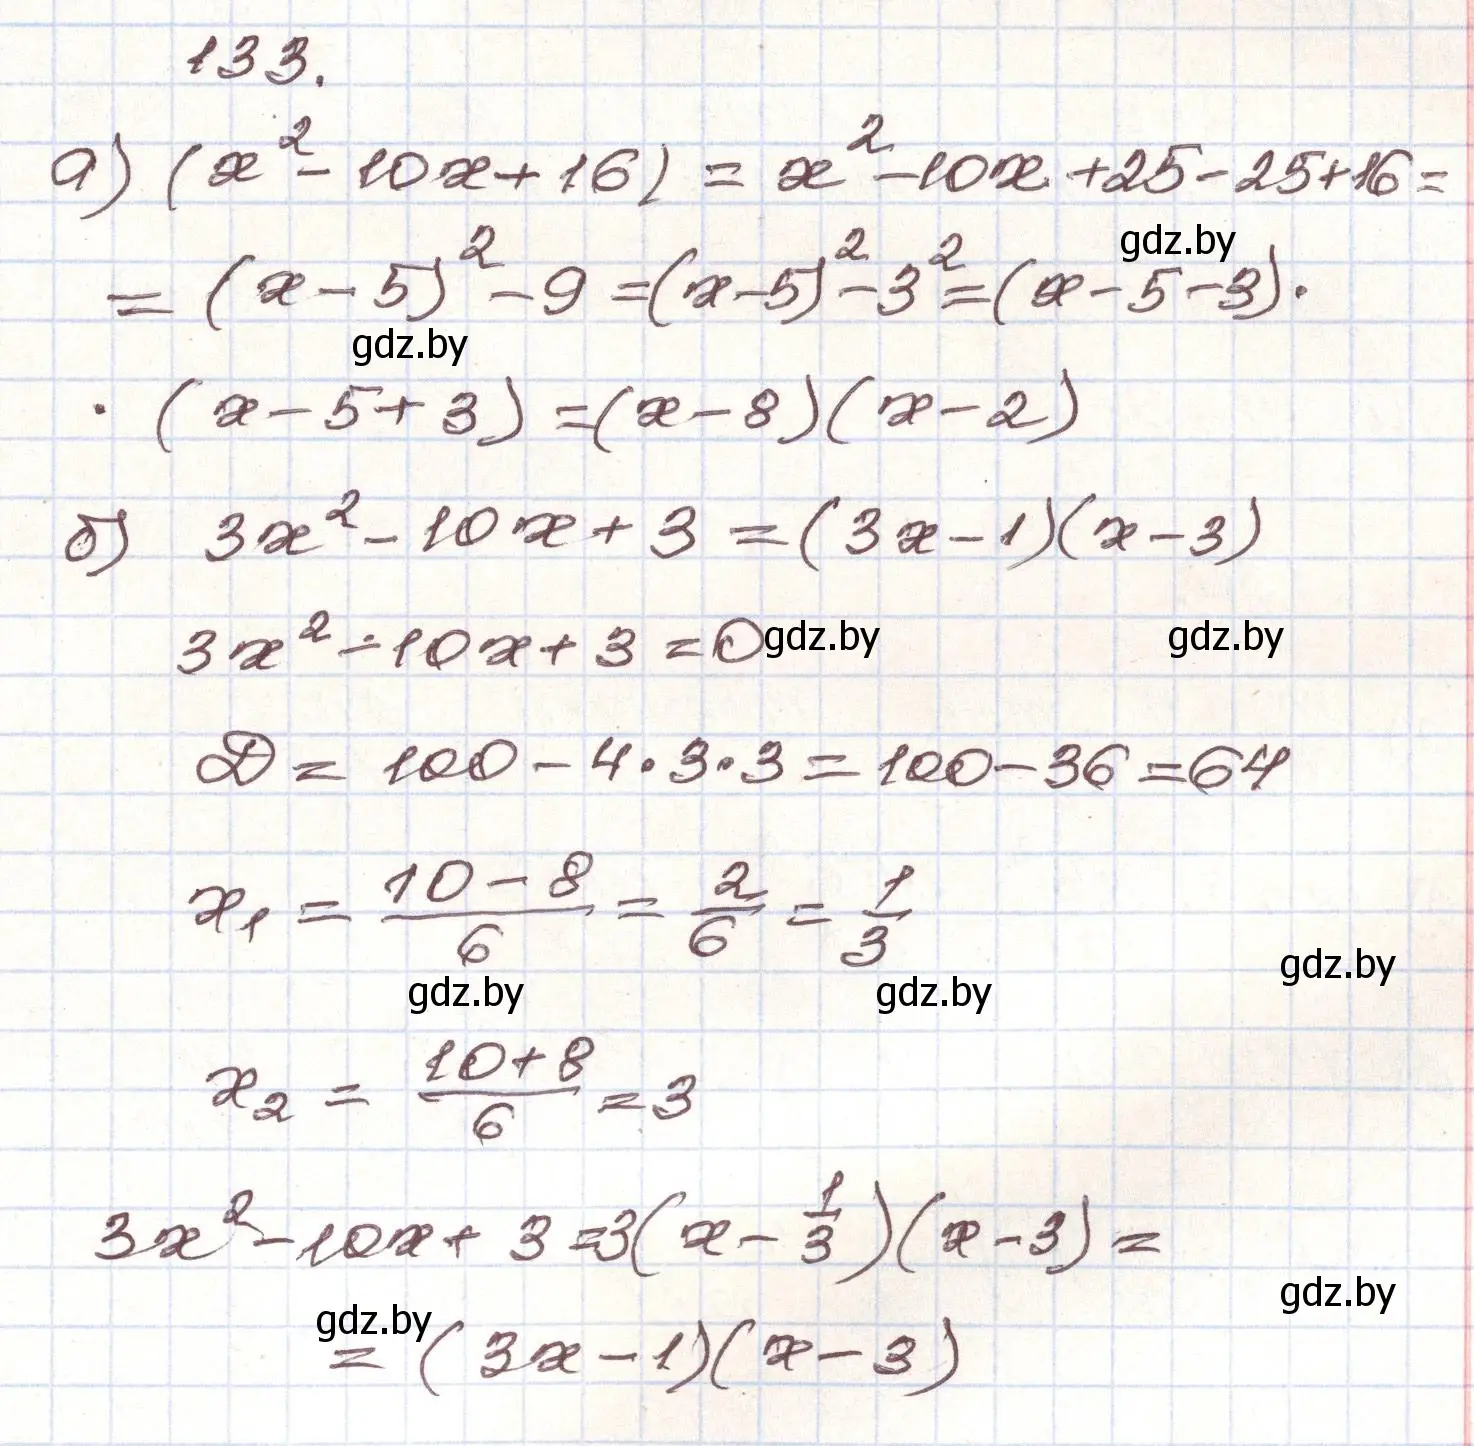 133.
а) (x² - 10x + 16) = x² - 10x + 25 - 25 + 16 =
gdz.by
= (x - 5)² - 9 = (x - 5)² - 3² = (x - 5 - 3) ·
gdz.by
· (x - 5 + 3) = (x - 8)(x - 2)
б) 3x² - 10x + 3 = (3x - 1)(x - 3)
3x² - 10x + 3 = 0 gdz.by gdz.by
D = 100 - 4 · 3 · 3 = 100 - 36 = 64
x₁ = (10 - 8)/6 = 2/6 = 1/3
gdz.by
gdz.by gdz.by
x₂ = (10 + 8)/6 = 3
3x² - 10x + 3 = 3(x - 1/3)(x - 3) =
gdz.by
gdz.by
= (3x - 1)(x - 3)